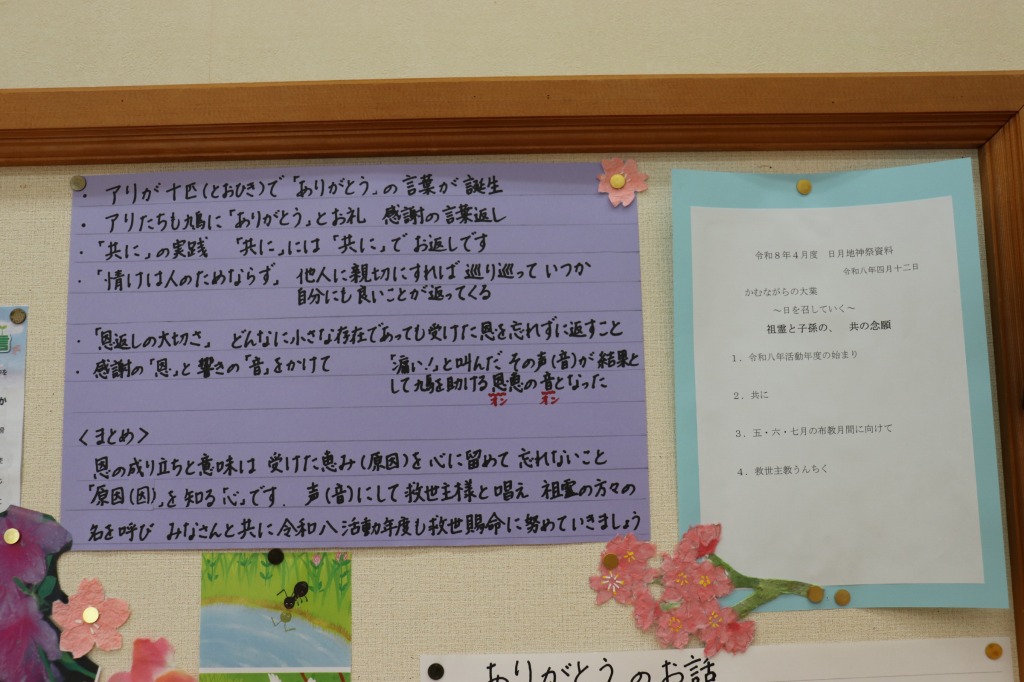 ・アリが十匹(とおひき)で「ありがとう」の言葉が誕生
・アリたちも鳩に「ありがとう」とお礼 感謝の言葉返し
・「共に」の実践 「共に」には「共に」でお返しです
・「情けは人のためならず」 他人に親切にすれば巡り巡っていつか
自分にも良いことが返ってくる
・「恩返しの大切さ」 どんなに小さな存在であっても受けた恩を忘れずに返すこと
・感謝の「恩」と響きの「音」をかけて 「痛い!」と叫んだその声(音)が結果と
して鳩を助ける恩恵の音となった
オン オン
<まとめ>
恩の成り立ちと意味は 受けた恵み(原因)を心に留めて忘れないこと
「原因(因)」を知る「心」です. 声(音)にして救世主様と唱え 祖霊の方々の
名を呼び みなさんと共に令和八活動年度も救世賜命に努めていきましょう
令和8年4月度 日月地神祭資料
令和八年四月十二日
かむながらの大業
~日を召していく~
祖霊と子孫の、 共の念願
1.令和八年活動年度の始まり
2.共に
3.五・六・七月の布教月間に向けて
4.救世主教うんちく
ありがとうのお話